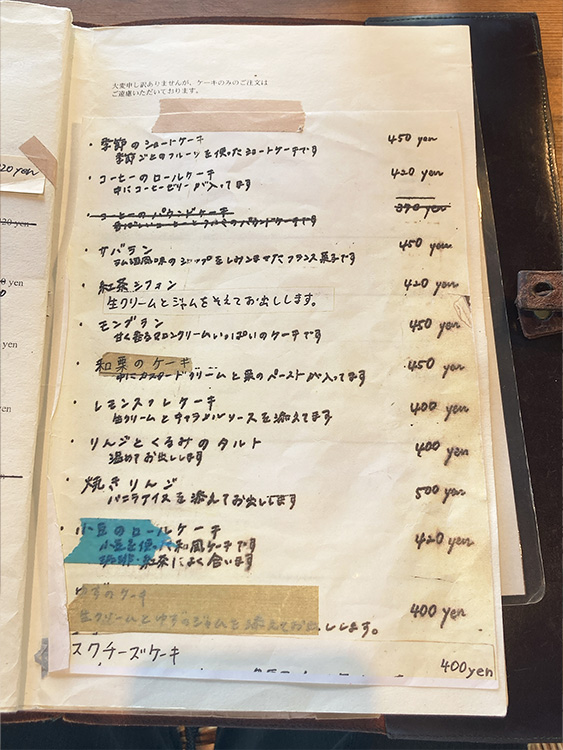 大変申し訳ありませんが、ケーキのみのご注文は
ご遠慮いただいております。
・季節のショートケーキ 450 yen
季節ごとのフルーツを使ったショートケーキです
・コーヒーのロールケーキ 420 yen
中にコーヒーゼリーが入ってます
・コーヒーのパウンドケーキ 390 yen
香ばしいコーヒーと のパウンドケーキです
・サバラン 450 yen
ラム酒風味のシロップをしみこませたフランス菓子です
・紅茶シフォン 420 yen
生クリームとジャムをそえてお出しします。
・モンブラン 450 yen
甘く香るマロンクリームいっぱいのケーキです
・和栗のケーキ 450 yen
中にカスタードクリームと栗のペーストが入ってます
・レモンスフレケーキ 400 yen
生クリームとキャラメルソースを添えてます
・りんごとくるみのタルト 400 yen
温めてお出しします
・焼きりんご 500 yen
バニラアイスを添えてお出しします
・小豆のロールケーキ 420 yen
小豆を使った和風ケーキです
珈琲・紅茶によく合います
ゆずのケーキ 400 yen
生クリームとゆずのジャムを添えてお出しします。
スクチーズケーキ 400yen
20 yen
20 yen
yen
yen
yen